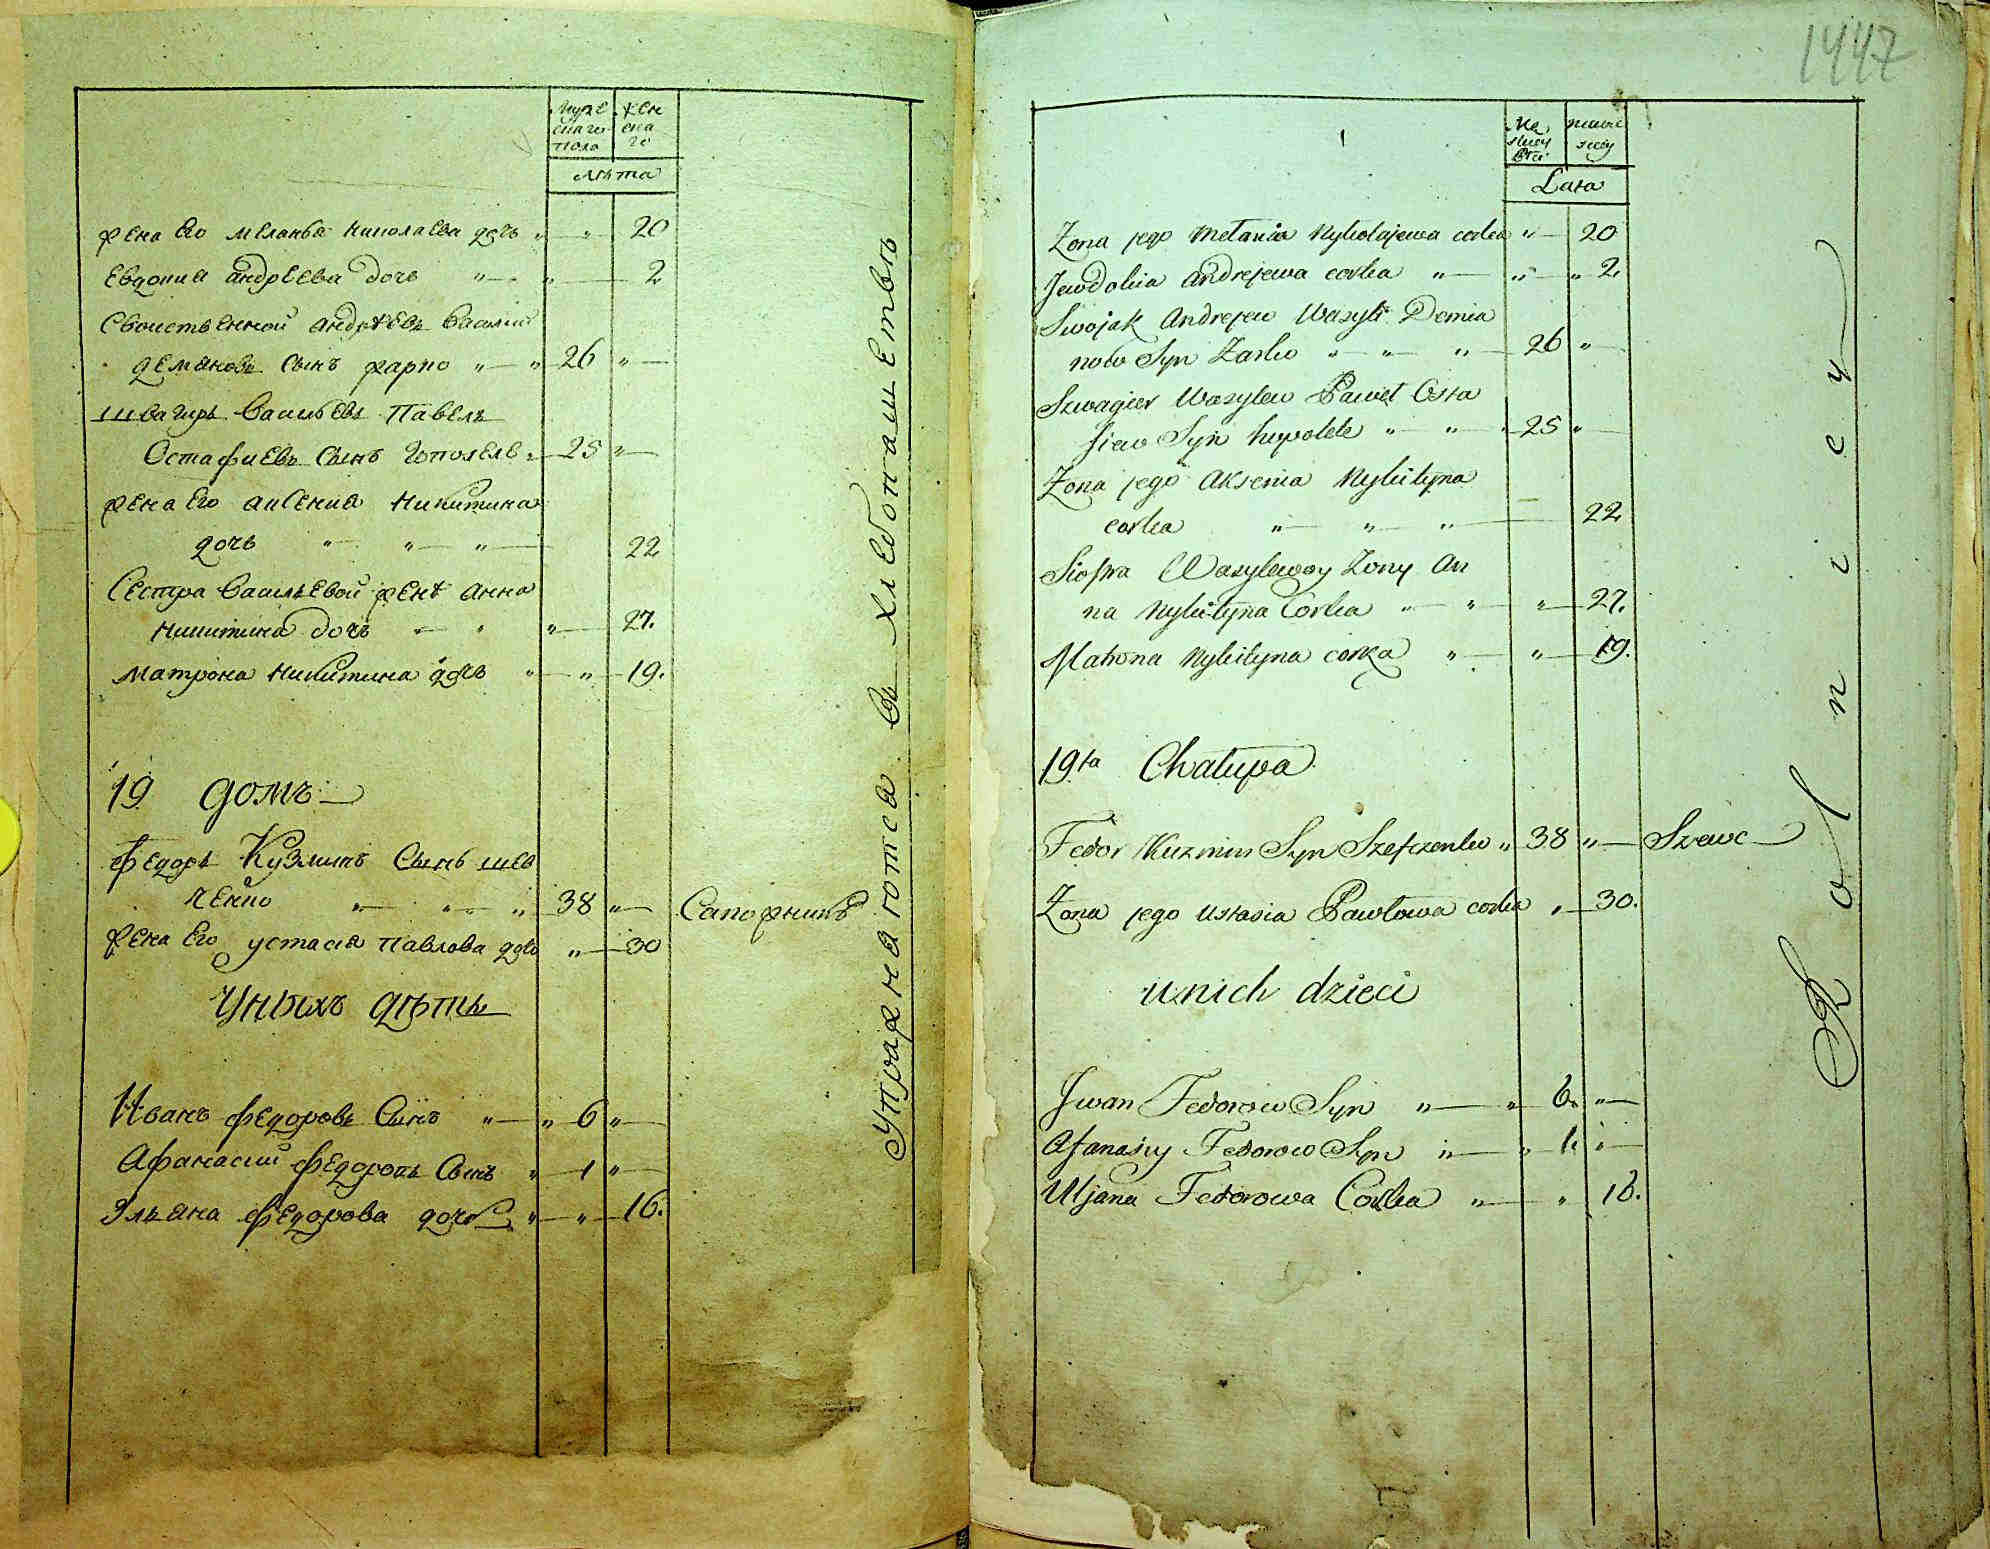 Мужескаго пола
Женскаго
Лѣта
жена его меланья николаева дочь " " 20
Евдокия андреева дочь " " 2
Свойственной андрѣевъ василий
демяновъ сынъ жарко " " 26 "
швагиръ васильевъ павелъ
Остафиевъ сынъ " 25 "
жена его аксения никитина
дочь " " " 22
Сестра васильевой женѣ анна
никитина дочь " " " 27.
матрона никитина дочь " " 19.
19 домъ
федоръ Кузминъ сынъ шев
ченко " " " 38 "
Сапожникъ
жена его устасия павлова дочь " 30
Уныхъ дѣти
Иванъ федоровъ сынъ " " 6 "
Афанасий федоровъ сынъ " 1 "
Ульяна федорова дочь " " 16.
Упражняются въ хлебопашествѣ
1447
Lata
Zona jego Melania Nykołajewa corka " 20
Jewdokia Andrejewa corka " " " 2.
Swojak Andrejew Wasyli Demia
now Syn Zarko " " " 26 "
Szwagier Wasylew Paweł Osta
fiew Syn " " " 25 "
Zona jego Aksenia Nykityna
corka " " " 22
Siostra Wasylewoy Zony An
na Nykityna Corka " " " 27.
Matrona Nykityna corka " " 19.
19ta Chałupa
Fedor Kuzmin Syn Szefczenko " 38 " Szewc
Zona jego Ustasia Pawłowa corka " 30.
u nich dzieci
Jwan Fedorow Syn " " 6. "
Afanasiy Fedorow Syn " " 1. "
Uljana Fedorowa Corka " " 16.
Rolnicy